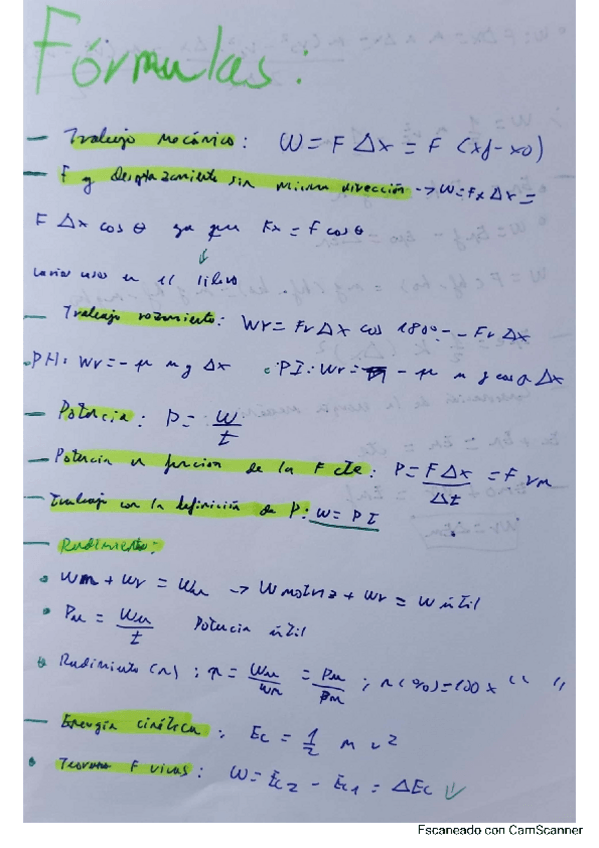 Fórmulas:
— Trabajo mecánico: W = F Δx = F (xf - x0)
— F y desplazamiento sin misma dirección → W = Fx Δx =
F Δx cos θ ya que Fx = F cos θ
↓
varios usos en el libro
— Trabajo rozamiento: Wr = Fr Δx cos 180º = - Fr Δx
• PH: Wr = - μ m g Δx • PI: Wr = - μ m g cos α Δx
— Potencia: P = W/t
— Potencia en función de la F cte: P = F Δx/Δt = F vm
— Trabajo con la definición de P: W = P t
— Rendimiento:
• Wm + Wr = Wu → W motriz + Wr = W útil
• Pu = Wu/t Potencia útil
• Rendimiento (η): η = Wu/Wm = Pu/Pm ; η (%) = 100 x " "
— Energía cinética: Ec = 1/2 m v²
• Teorema F vivas: W = Ec2 - Ec1 = ΔEc ↓
Escaneado con CamScanner